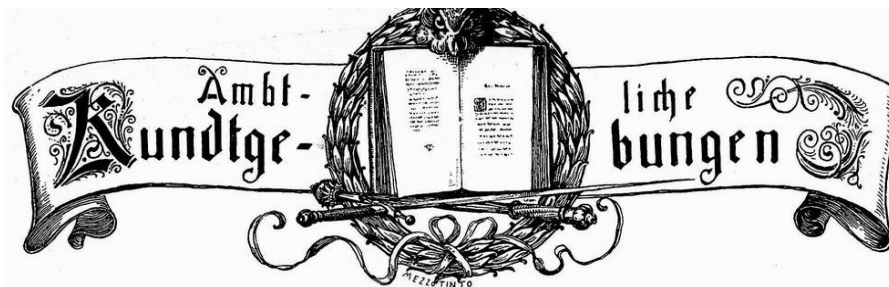 Ambt- liche
Kundtge- bungen
MEZZOTINTO